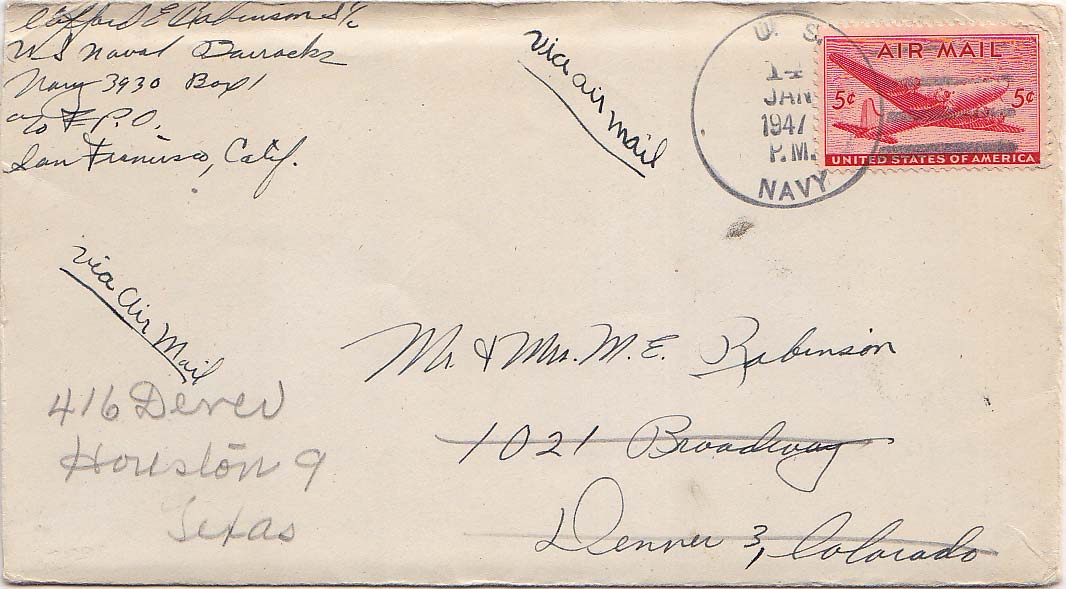 Clifford E Robinson S 1/c
US Naval Barracks
Navy 3930 Box 1
c/o F.P.O.
San Francisco, Calif.
via air mail
U. S.
14
JAN
1947
P.M.
NAVY
AIR MAIL
5¢ 5¢
UNITED STATES OF AMERICA
via Air Mail
Mr. & Mrs. M. E. Robinson
1021 Broadway
Denver 3, Colorado
416
Houston 9
Texas